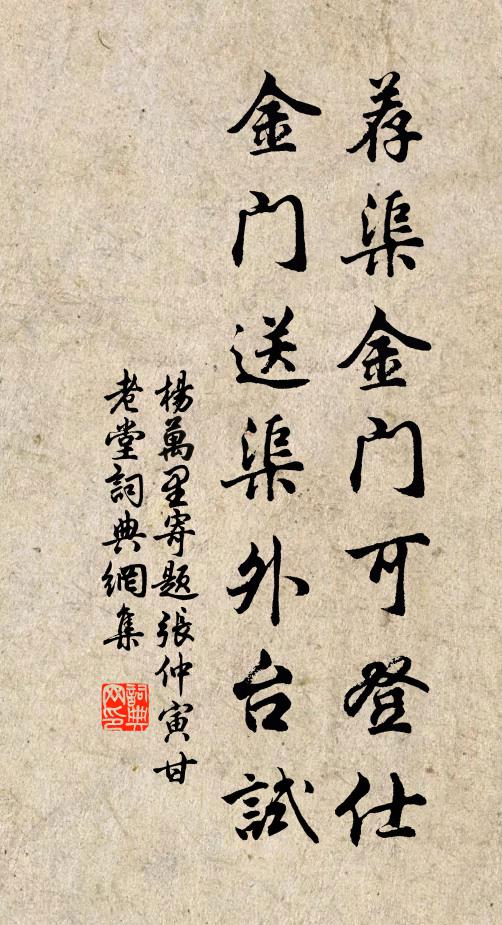 荐渠金门可登仕
金门送渠外台試
楊萬里寄題張仲寅甘
老堂詞典網集
詞典网印